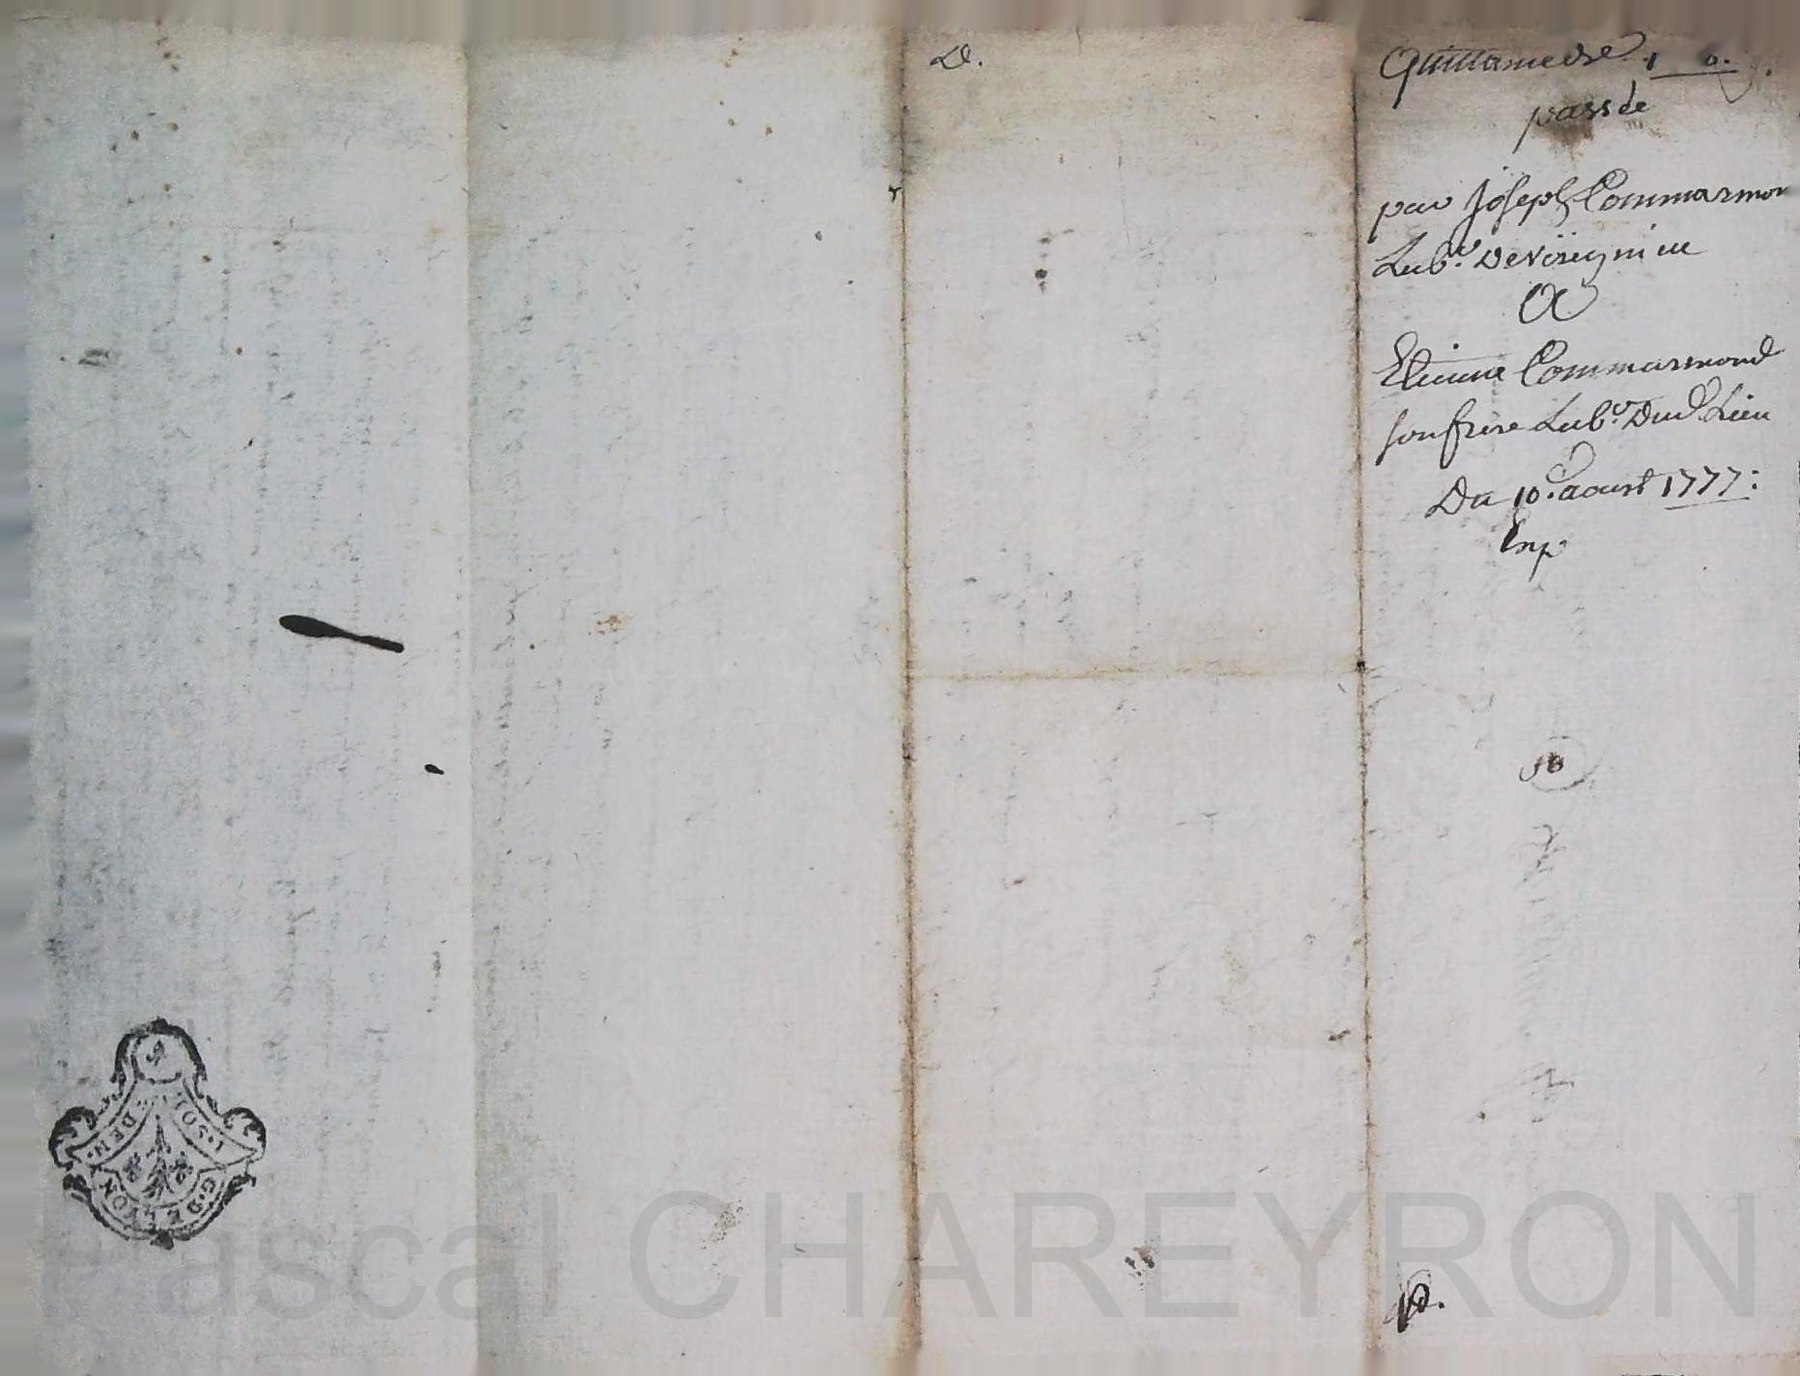 D.
Quittance de 
passée
par Joseph Commarmon
Lab.r De Virignieu
A
Etienne Commarmond
son frere Lab.r Dud. Lieu
Du 10.e aoust 1777:
Exp
10
I·SOL
DEN
G·DE LYON
Pascal CHAREYRON